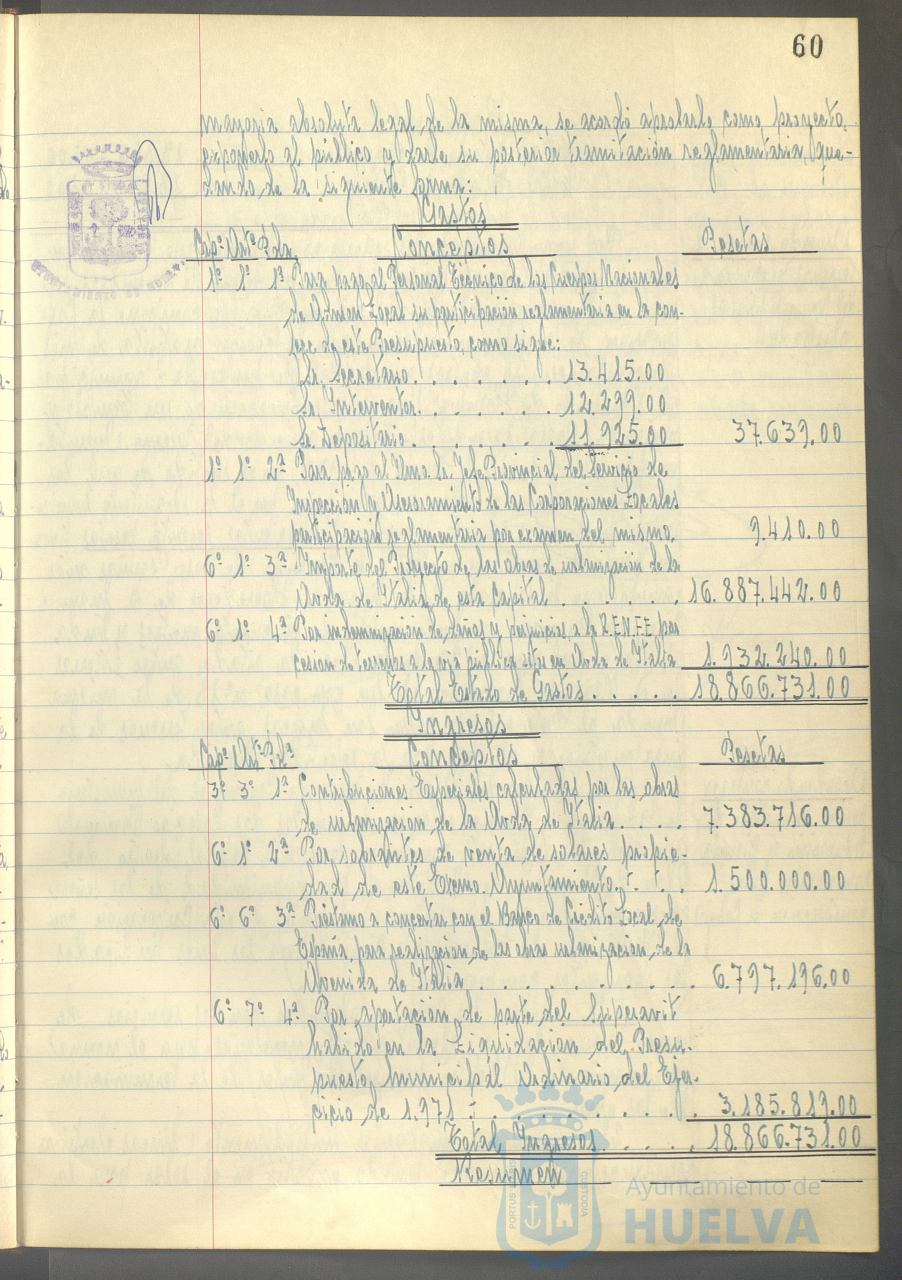 60
mayoria absoluta legal de la misma, se acordó aprobarlo como proyecto,
exponerlo al público y darle su posterior tramitación reglamentaria, que-
dando de la siguiente forma:
Gastos
Cap.º Art.º Pda. Conceptos Pesetas
1º 1º 1ª Para pago al Personal Técnico de los Cuerpos Nacionales
de Admon Local su participación reglamentaria en la con-
fecc. de este Presupuesto, como sigue:
Sr. Secretario. . . . . . . 13.415.00
Sr. Interventor. . . . . . 12.299.00
Sr. Depositario. . . . . . 11.925.00 37.639.00
1º 1º 2ª Para pago al Ilmo. Sr. Jefe Provincial del Servicio de
Inspección y Asesoramiento de las Corporaciones Locales
participación reglamentaria por examen del mismo. 9.410.00
6º 1º 3ª Importe del Proyecto de las obras de urbanización de la
Avda. de Italia, de esta Capital . . . . . . 16.887.442.00
6º 1º 4ª Por indemnización de daños y perjuicios a la R.E.N.F.E por
cesion de terrenos a la via pública sitos en Avda. de Italia 1.932.240.00
Total Estado de Gastos. . . . . 18.866.731.00
Ingresos
Cap.º Art.º Pda. Conceptos Pesetas
3º 3º 1ª Contribuciones Especiales calculadas por las obras
de urbanización de la Avda. de Italia. . . . 7.383.716.00
6º 1º 2ª Por sobrantes de venta de solares propie-
dad de este Excmo. Ayuntamiento. . . . 1.500.000.00
6º 6º 3ª Préstamo a concertar con el Banco de Crédito Local de
España, para realización de las obras urbanización de la
Avenida de Italia . . . . . . . . . 6.797.196.00
6º 7º 4ª Por aportación de parte del Superavit
habido en la Liquidación del Presu-
puesto Municipal Ordinario del Ejer-
cicio de 1.971 . . . . . . . . . 3.185.819.00
Total Ingresos. . . . . 18.866.731.00
Resumen
PORTUS CUSTODIA
Ayuntamiento de
HUELVA